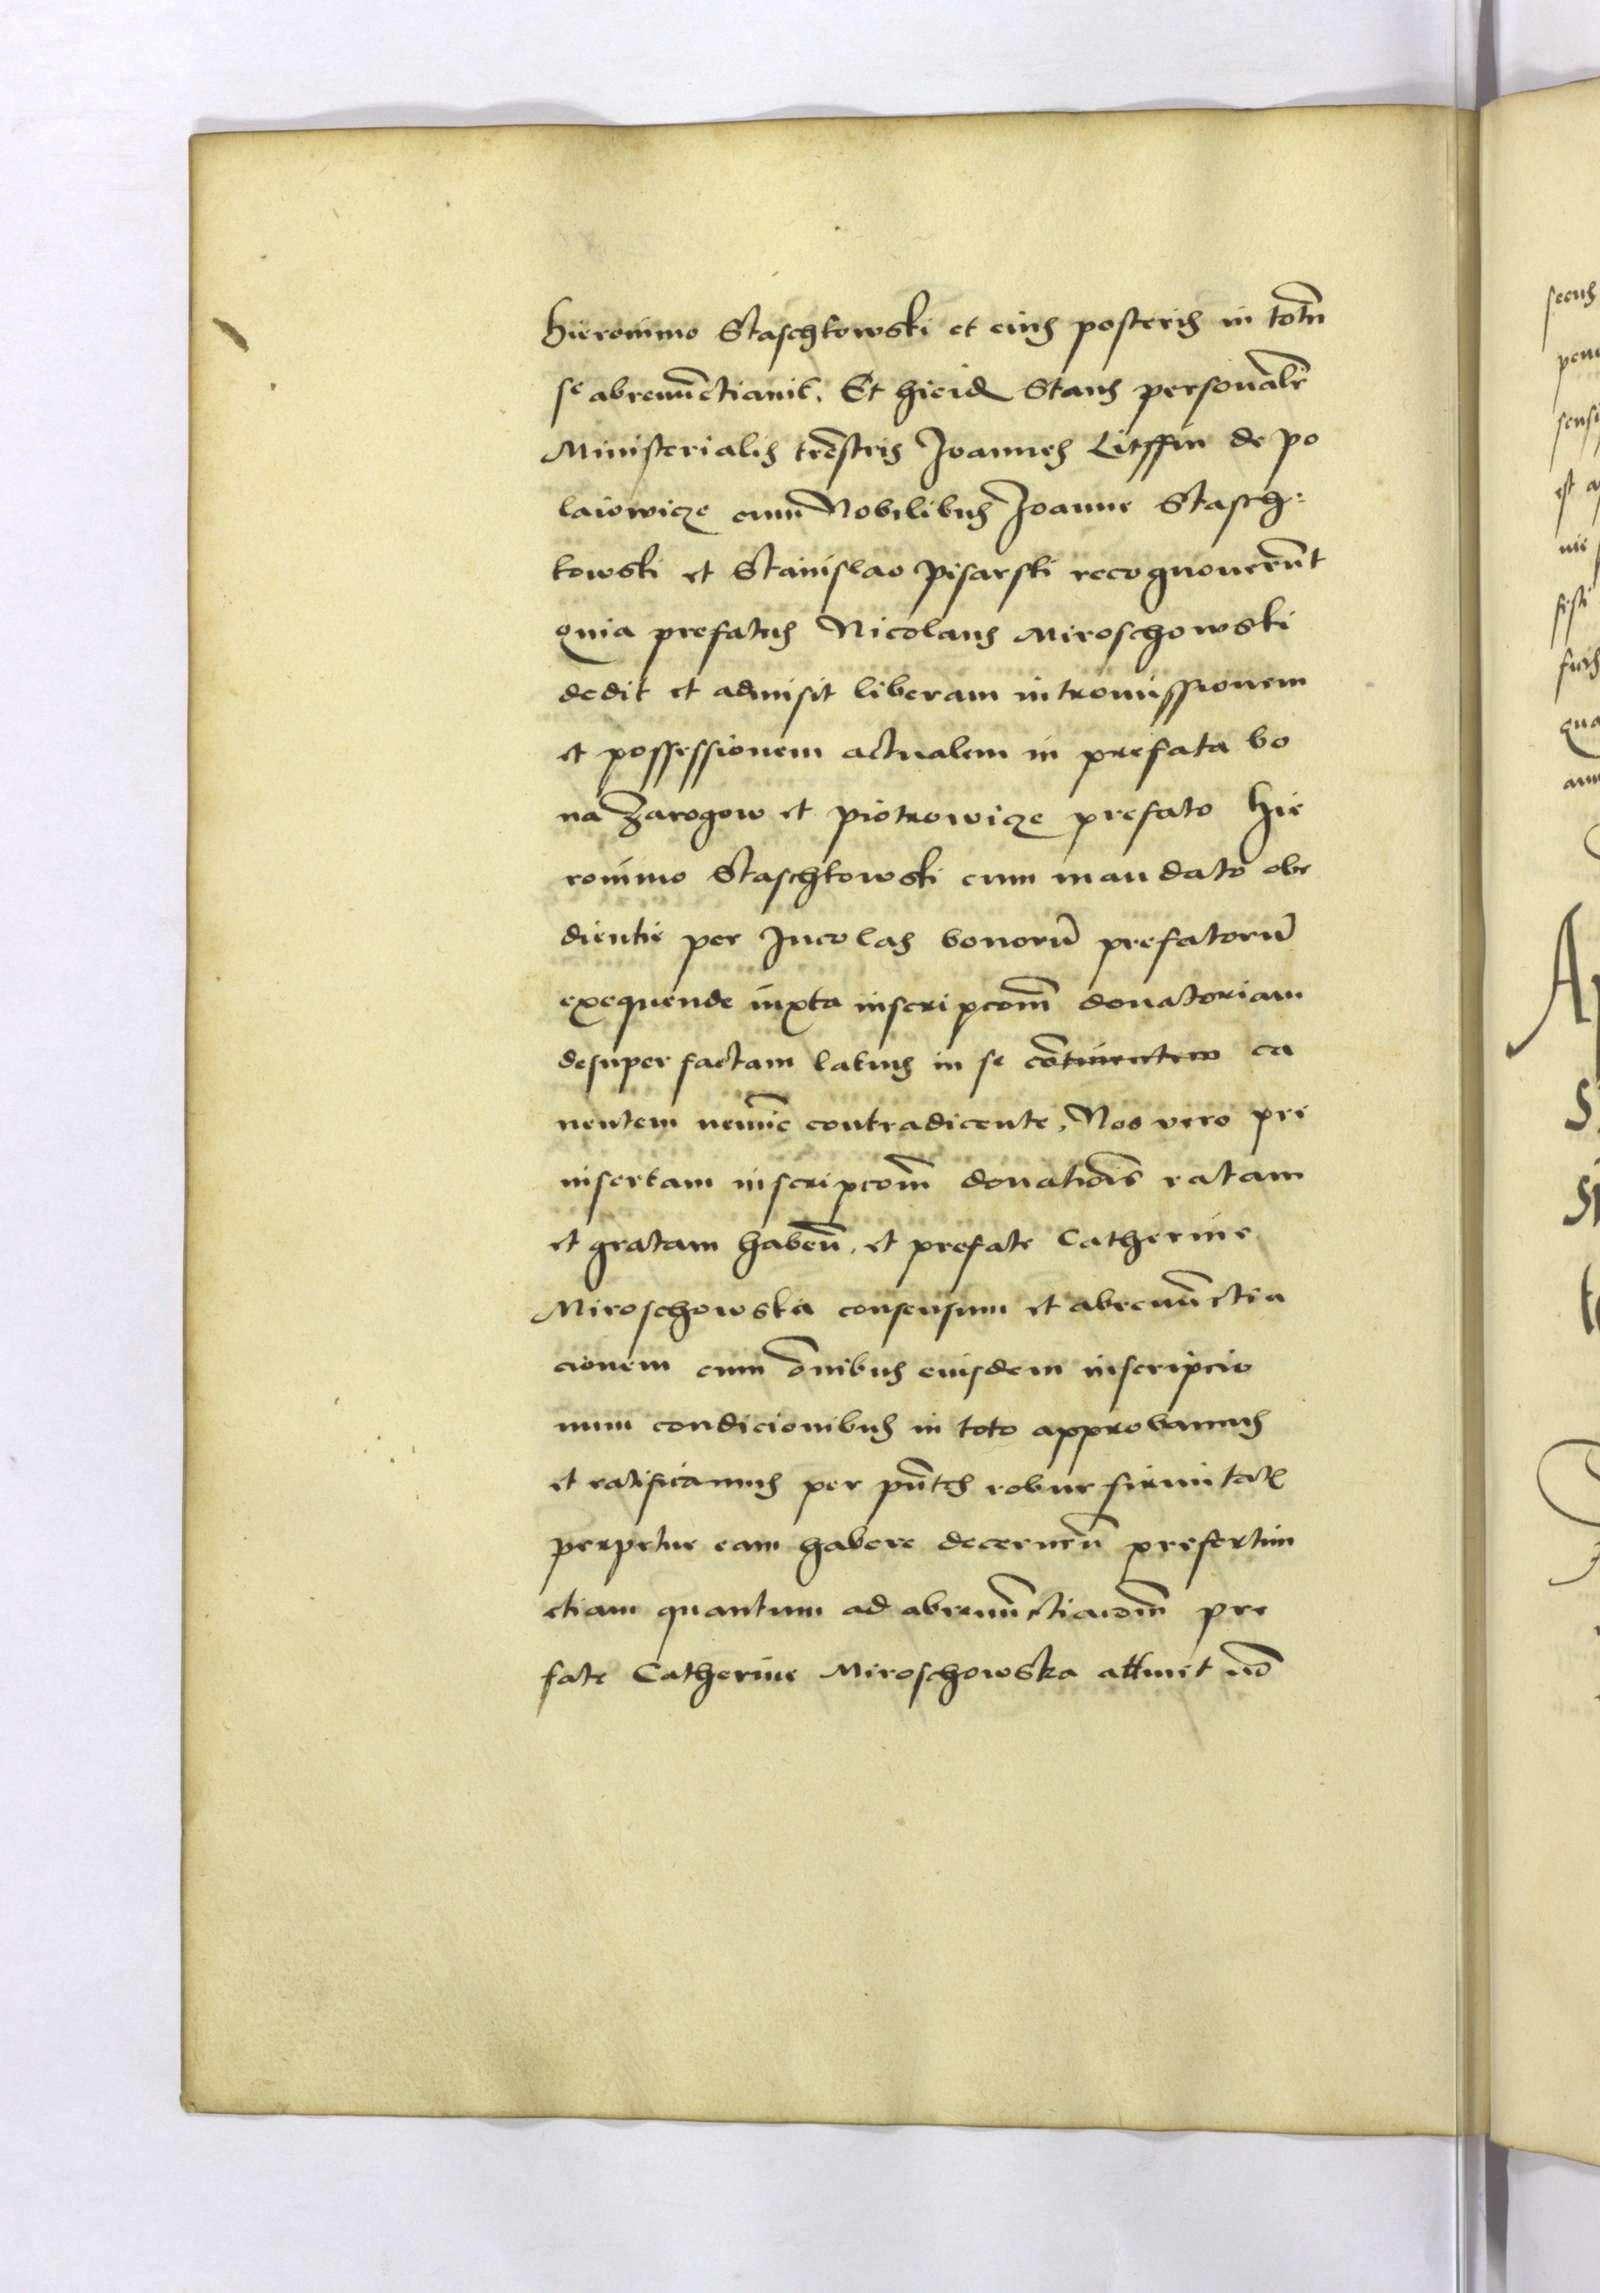 Hieronimo Staschkowski et eius posteris in totũ
se abrenũctiavit. Et hic id Stans personalr̃
Ministerialis trẽstris Joannes Litffin de Po
laiowicze cum Nobilibus Joanne Stasch:
kowski et Stanislao Pisarski recognoverũt
Quia prefatus Nicolaus Miroschowski
dedit et admisit liberam intromissionem
et possessionem actualem in prefata bo
na Zarogow et Piotrowicze prefato Hie
ronimo Staschkowski cum mandato obe
dientie per Incolas bonorũ prefatorũ
exequende iuxta inscripcom̃ donatoriam
desuper factam latius in se cõtinentem ca
nentem nemĩe contradicente, Nos vero pri
insertam inscripcom̃ donatiõis ratam
et gratam habeñ. et prefate Catherine
Miroschowska consensum et abrenũctia
cionem cum õnibus eiusdem inscripcio
num condicionibus in toto approbamus
et ratificamus per pñtes robur firmitatis
perpetue eam habere decerneñ presertim
etiam quantum ad abrenũctiacom̃ pre
fate Catherine Miroschowska attinet nõ